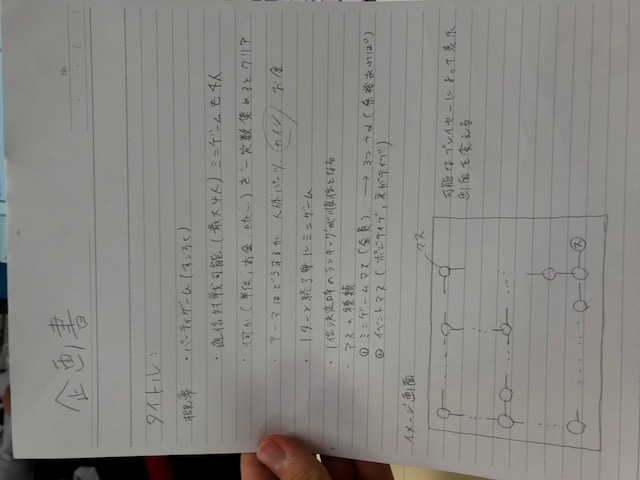 企画書
No.
タイトル:
概要 ・パーティゲーム(すごろく)
・通信対戦可能(最大4人) ミニゲームも4人
・何か(単位, お金, etc...)を一定数集めるとクリア
・テーマはどうするか 人体パーツ, カイジ お金
・1ターン終了毎にミニゲーム
・1位決定時のランキングが順位となる
・マスの種類
① ミニゲームマス(全員) → 3つ+α(余裕あれば)
② イベントマス(ポジティブ, ネガティブ)
イメージ画面
マス
可能ならプレイヤーによって表示
画面を変える
ス